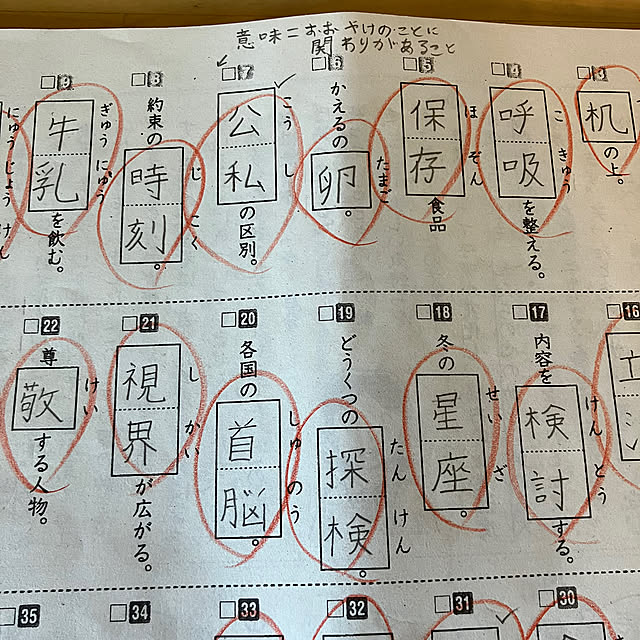 意味=おおやけのことに
関わりがあること
3
机の上。
4
呼吸を整える。
こきゅう
5
保存食品
ほぞん
6
かえるの卵。
たまご
7
公私の区別。
こうし
8
約束の時刻。
じこく
9
牛乳を飲む。
ぎゅうにゅう
にゅうじょうけん
16
17
内容を検討する。
けんとう
18
冬の星座。
せいざ
19
どうくつの探検。
たんけん
20
各国の首脳。
しゅのう
21
視界が広がる。
しかい
22
尊敬する人物。
けい
30
31
32
33
34
35